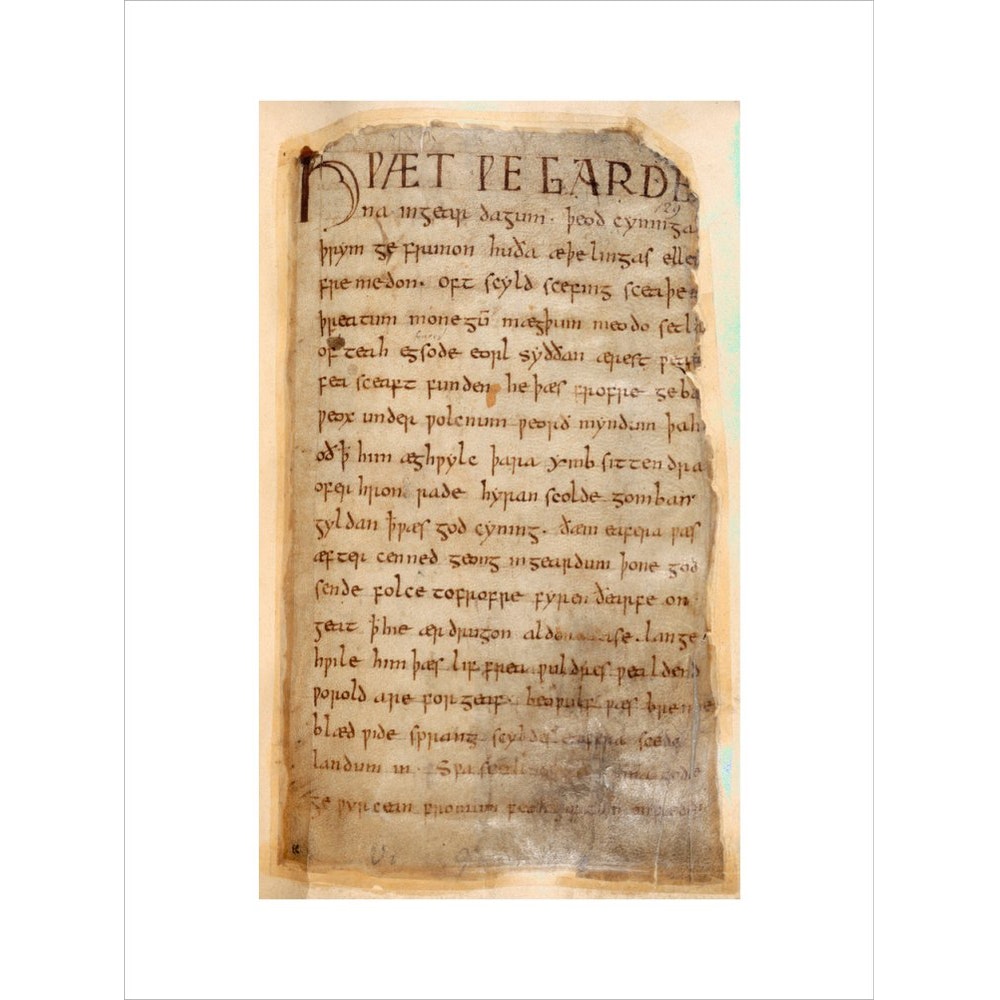 HǷÆT ǷE GARDE
na ingear dagum. þeod cyninga
þrym ge frunon huða æþelingas elle
fremedon. oft scyld scefing sceaþe
þreatum monegū mægþum meodo setla
of teah egsode eorl syððan ærest ƿear
fea sceaft funden he þæs frofre geba
ƿeox under ƿolcnum ƿeorð myndum þah
oð ꝥ him æghƿylc þara ymb sittendra
ofer hron rade hyran scolde gomban
gyldan ꝥ ƿæs god cyning. ðæm eafera ƿæs
æfter cenned geong ingeardum þone god
sende folce tofrofre fyren ðearfe on
geat ꝥ hie ær drugon aldor ase. lange
hƿile him þæs lif frea ƿuldres ƿealdend
ƿorold are for geaf. beoƿulf ƿæs breme
blæd ƿide sprang scyldes eafera scede
landum in. Sƿa
ge ƿyrcean fromum